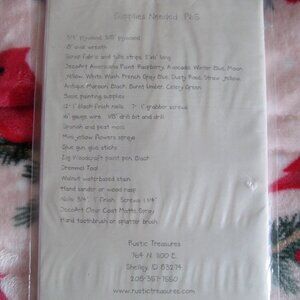 Supplies Needed
3/4" plywood, 3/8" plywood
8" oval wreath
Scrap fabric and tulle strips, 1"x6" long
DecoArt Americana Paint: Raspberry, Avocado, Winter Blue, Moon
Yellow, White Wash, French Grey Blue, Dusty Rose, Straw, Yellow,
Antique Maroon, Black, Burnt Umber, Celery Green
Basic painting supplies
12- 1" black finish nails 7- 1" grabber screws
16 gauge wire 1/8" drill bit and drill
Spanish and peat moss
Mini yellow flowers sprays
Glue gun, glue sticks
Zig Woodcraft paint pen, Black
Dremmel Tool
Walnut waterbased stain
Hand sander or wood rasp
Nails: 3/4" 1" finish Screws: 1 1/4"
DecoArt Clear Coat Matte Spray
Hard toothbrush or splatter brush
Rustic Treasures
764 N. 1100 E.
Shelley, ID 83274
208-357-7550
www.rustictreasures.com